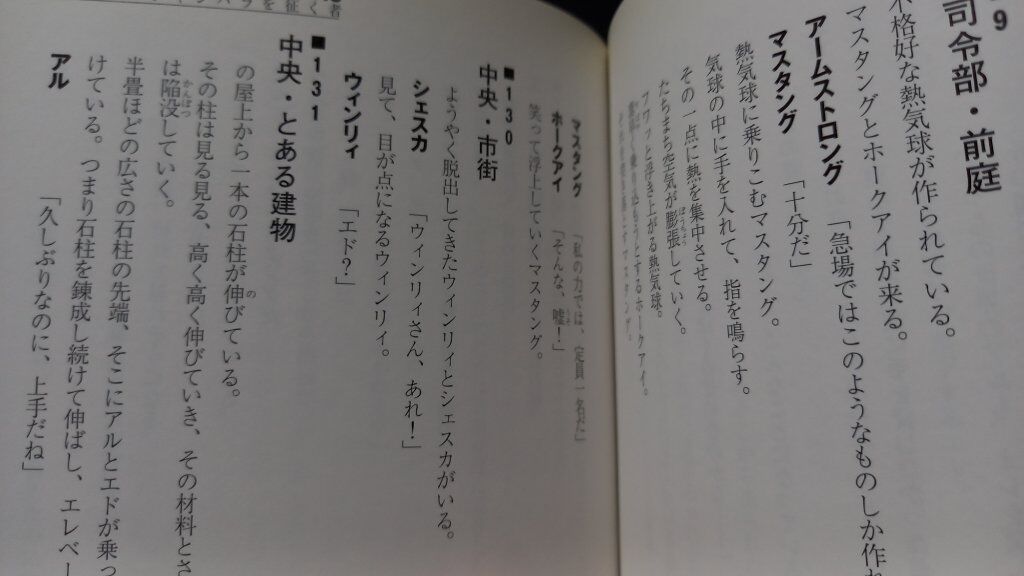 9
司令部・前庭
不格好な熱気球が作られている。
マスタングとホークアイが来る。
アームストロング 「急場ではこのようなものしか作れ
マスタング 「十分だ」
熱気球に乗りこむマスタング。
気球の中に手を入れて、指を鳴らす。
その一点に熱を集中させる。
たちまち空気が膨張していく。
フワッと浮き上がる熱気球。
マスタング 「私の力では、定員一名だ」
ホークアイ 「そんな、嘘!」
笑って浮上していくマスタング。
■130
中央・市街
ようやく脱出してきたウィンリィとシェスカがいる。
シェスカ 「ウィンリィさん、あれ!」
見て、目が点になるウィンリィ。
ウィンリィ 「エド?」
■131
中央・とある建物
の屋上から一本の石柱が伸びている。
その柱は見る見る、高く高く伸びていき、その材料とさ
は陥没していく。
半畳ほどの広さの石柱の先端、そこにアルとエドが乗っ
けている。つまり石柱を錬成し続けて伸ばし、エレベー
アル 「久しぶりなのに、上手だね」